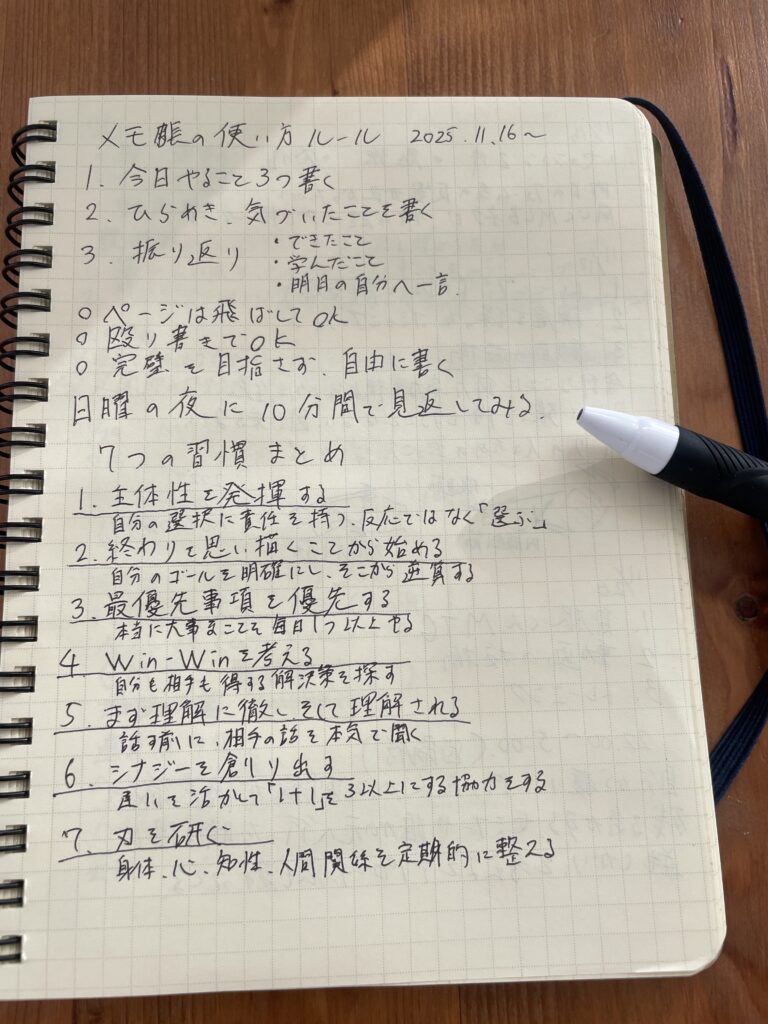 メモ帳の使い方ルール 2025.11.16〜
1. 今日やること3つ書く
2. ひらめき、気づいたことを書く
3. 振り返り ・できたこと
・学んだこと
・明日の自分へ一言.
○ ページは飛ばしてOK
○ 殴り書きでOK
○ 完璧を目指さず、自由に書く
日曜の夜に10分間で見返してみる.
7つの習慣まとめ
1. 主体性を発揮する
自分の選択に責任を持つ、反応ではなく「選ぶ」
2. 終わりを思い描くことから始める
自分のゴールを明確にし、そこから逆算する
3. 最優先事項を優先する
本当に大事なことを毎日1つ以上やる
4. Win-Winを考える
自分も相手も得する解決策を探す
5. まず理解に徹しそして理解される
話す前に、相手の話を本気で聞く
6. シナジーを創り出す
互いを活かして「1+1」を3以上にする協力をする
7. 刃を研ぐ
身体、心、知性、人間関係を定期的に整える